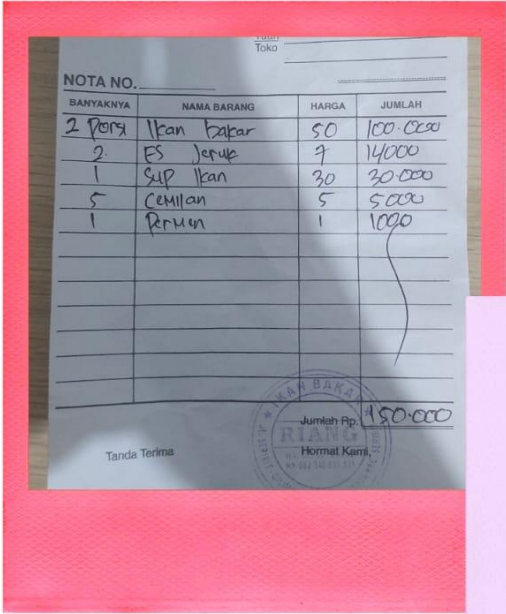 Tuan
Toko
NOTA NO.
BANYAKNYA NAMA BARANG HARGA JUMLAH
2 Porsi Ikan bakar 50 100.000
2. ES Jeruk 7 14000
1 Sup Ikan 30 30.000
5 Cemilan 5 5000
1 Permen 1 1000
Jumlah Rp. 150.000
IKAN BAKAR
RIANG
Tanda Terima Hormat Kami,